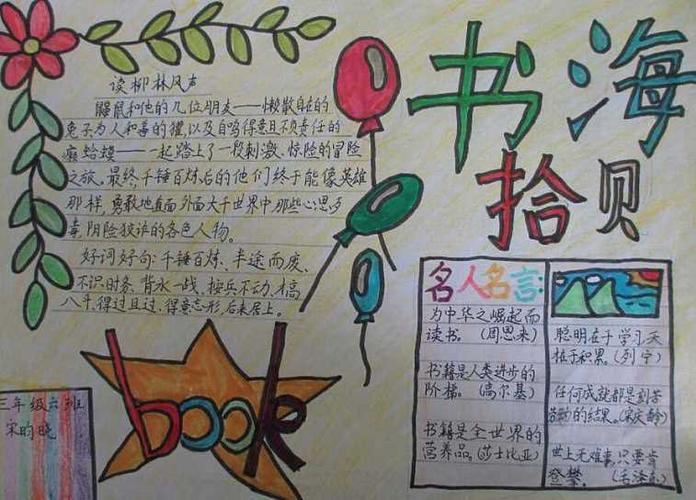 书海
拾贝
读柳林风声
鼹鼠和他的几位朋友——懒散自在的
兔子为人和善的獾,以及自鸣得意且不负责任的
癞蛤蟆——一起踏上了一段刺激、惊险的冒险
之旅。最终,千锤百炼后的他们终于能像英雄
那样,勇敢地直面外面大千世界中那些心思歹
毒,阴险狡诈的各色人物。
好词好句:千锤百炼、半途而废、
不识时务、背水一战、按兵不动、才高
八斗、得过且过、得意忘形、后来居上。
book
三年级六班
宋昀晓
名人名言:
为中华之崛起而
读书。(周恩来)
书籍是人类进步的
阶梯。(高尔基)
书籍是全世界的
营养品。(莎士比亚)
聪明在于学习,天
才于积累。(列宁)
任何成就都是刻苦
劳动的结果。(宋庆龄)
世上无难事,只要肯
登攀。(毛泽东)